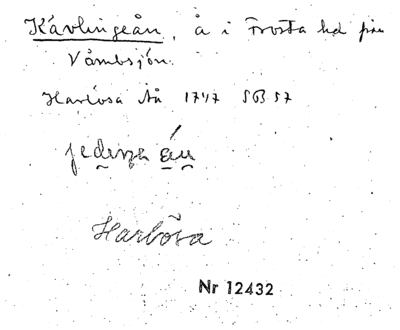 Kävlingeån, å i Frosta hd från
Vombsjön.
Harlösa Då 1747 SB 57
jedinga ån
Harlösa
Nr 12432